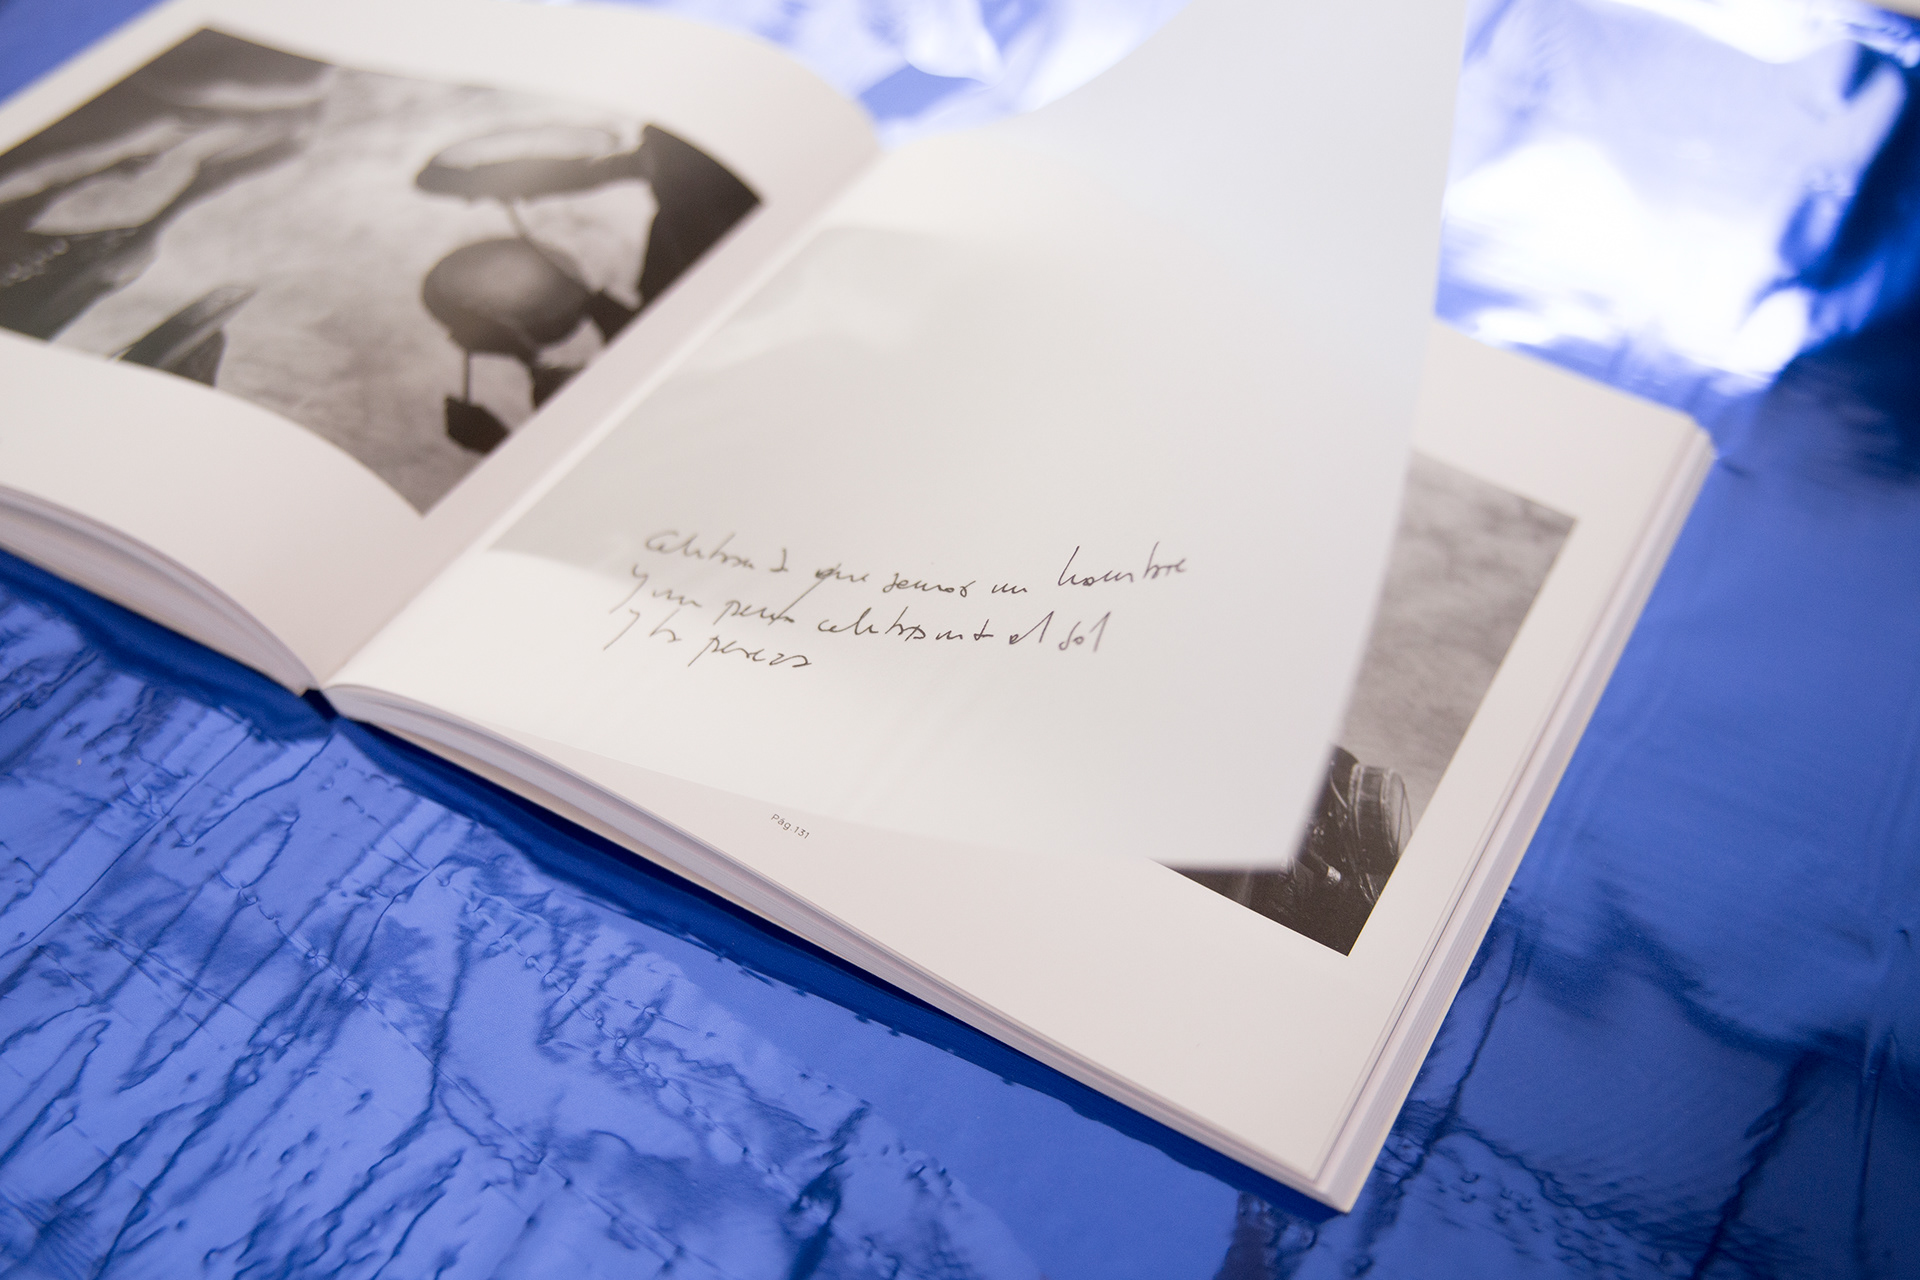 celebrando que somos un hombre
y un perro celebrando el sol
y la pereza
Pág.131